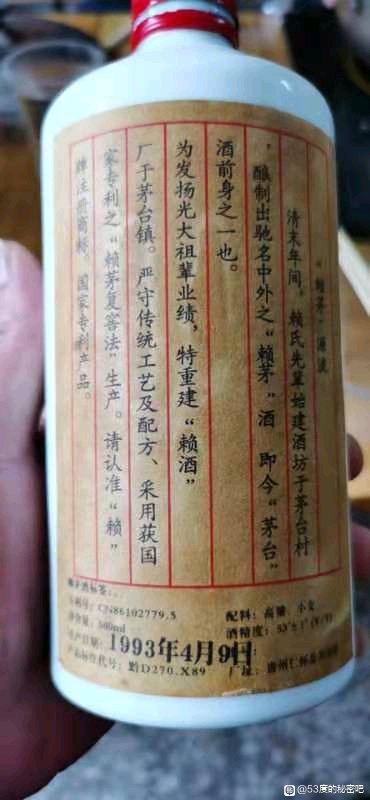 “赖茅”源流
清末年间，赖氏先辈始建酒坊于茅台村
，酿制出驰名中外之“赖茅”酒，即今“茅台”
酒前身之一也。
为发扬光大祖辈业绩，特重建“赖酒”
厂于茅台镇。严守传统工艺及配方、采用获国
家专利之“赖茅复窖法”生产。请认准“赖”
牌注册商标。国家专利产品。
专利号：CN86102779.5
配料：高粱、小麦
净含量：500ml
酒精度：53°±1°(V/V)
生产日期：1993年4月9日
产品标准代号：黔D270.X89
厂址：贵州仁怀县
@53度的秘密吧